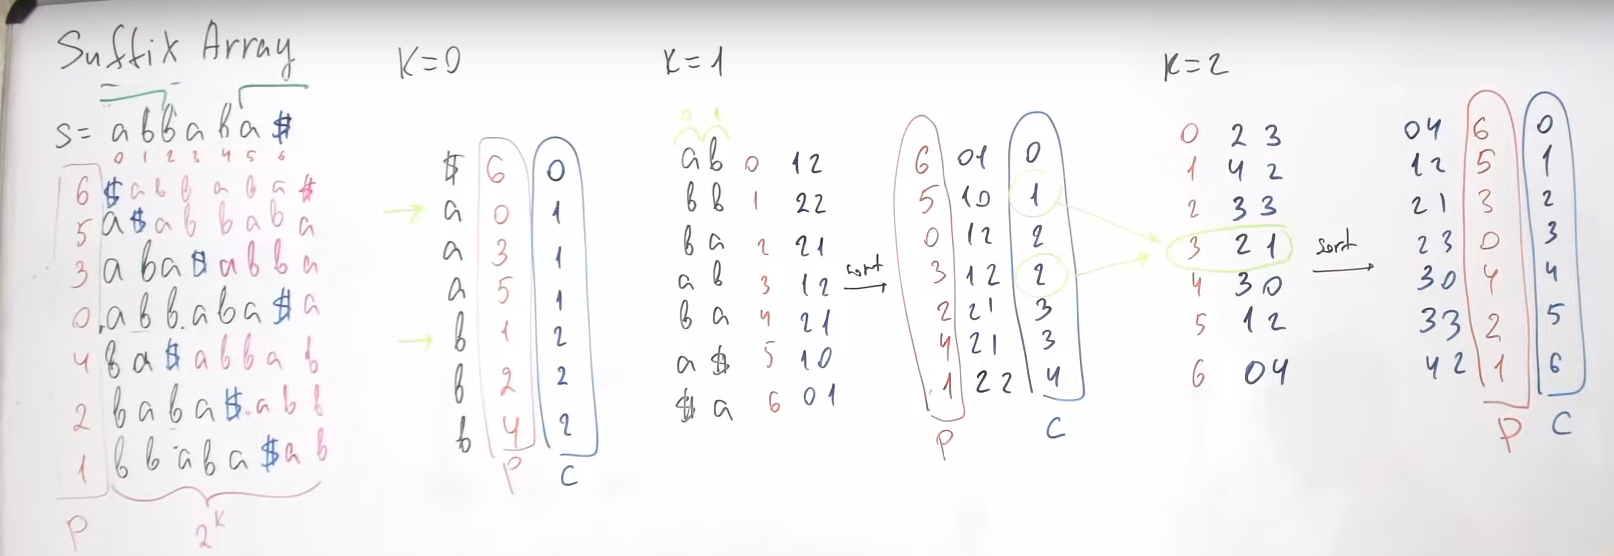 Suffix Array
S= a b b a b a $
0 1 2 3 4 5 6
6 $ a b b a b a $
5 a $ a b b a b a
3 a b a $ a b b a
0 a b b a b a $ a
4 b a $ a b b a b
2 b a b a $ a b b
1 b b a b a $ a b
P
2^K
K=0
$ 6 0
a 0 1
a 3 1
a 5 1
b 1 2
b 2 2
b 4 2
P C
K=1
0 1
ab 0 12
bb 1 22
ba 2 21
ab 3 12
ba 4 21
a$ 5 10
$a 6 01
sort
6 01 0
5 10 1
0 12 2
3 12 2
2 21 3
4 21 3
1 22 4
P C
K=2
0 2 3
1 4 2
2 3 3
3 2 1
4 3 0
5 1 2
6 0 4
sort
04 6 0
12 5 1
21 3 2
23 0 3
30 4 4
33 2 5
42 1 6
P C